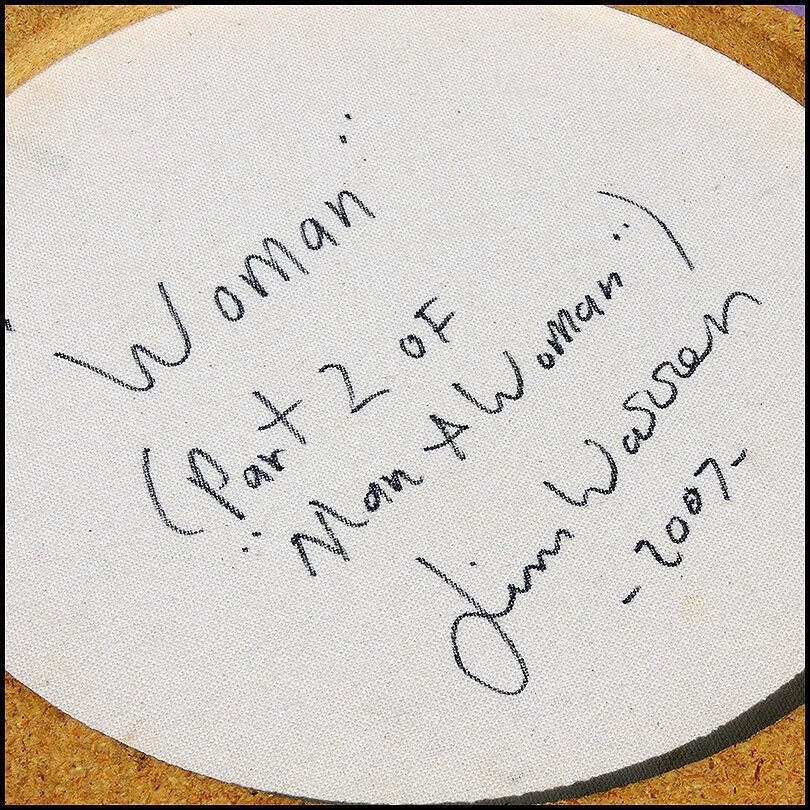 "Woman"
(Part 2 of
"Man + Woman")
Jim Warren
-2007-